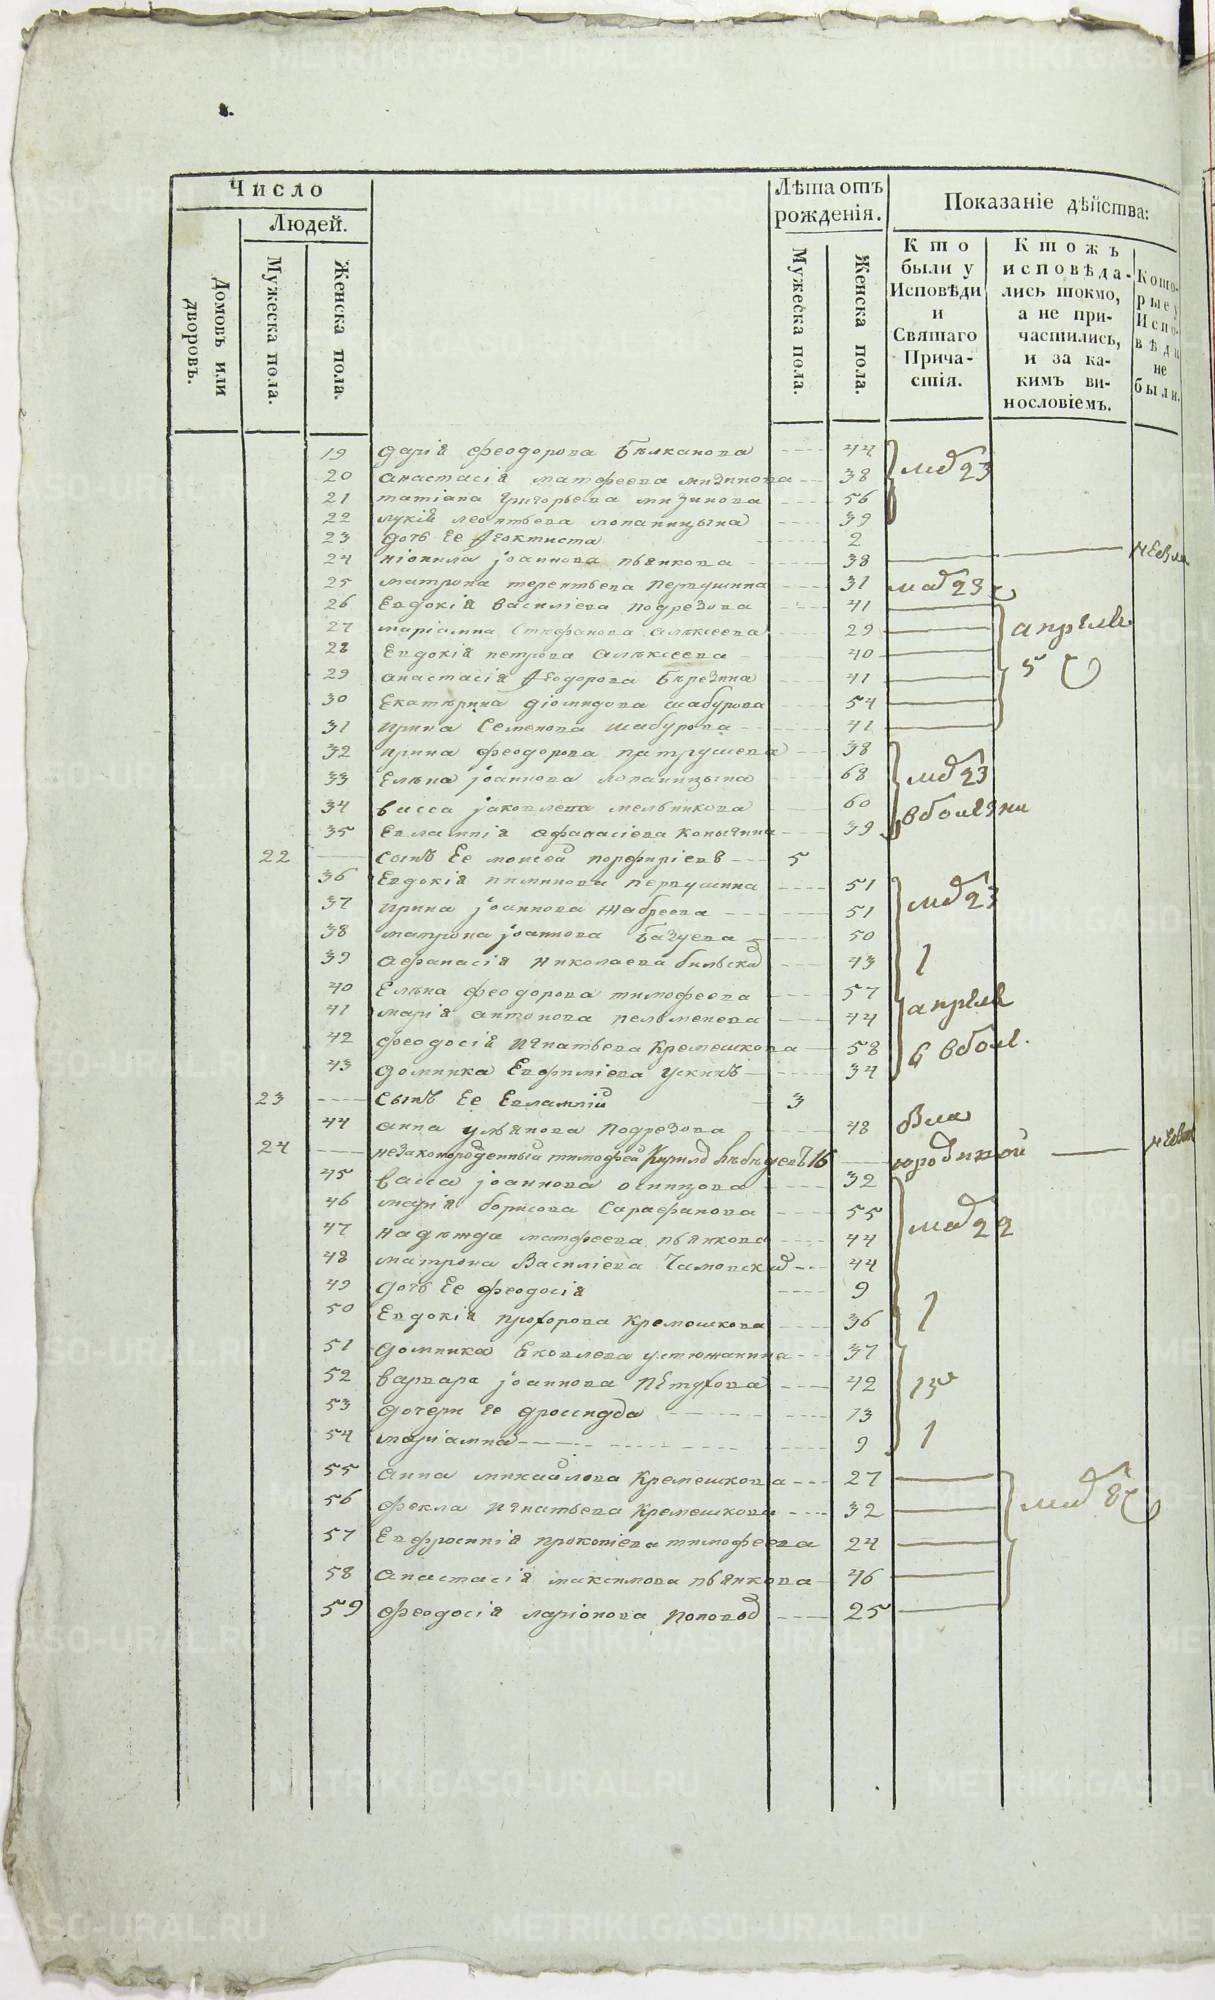 Число
Лѣта отъ рожденія.
Показаніе дѣйства:
Людей.
Домовъ или дворовъ.
Мужеска пола.
Женска пола.
Мужеска пола.
Женска пола.
Кто были у Исповѣди и Святаго Причастія.
Ктожъ исповѣдались токмо, а не причастились, и за какимъ винословіемъ.
Которые у Исповѣди не были.
19 дарія феодорова Бѣлканова 44
20 анастасія матфеева мизинова 38 маія 23
21 татіана григорьева мизинова 56
22 лукія леонтьева лопаницына 39
23 дочь Ее Ѳеоктиста 2
24 ніонила іоаннова пьянкова 38
25 матрона терентьева первушина 31 маія 23
26 Евдокія василіева подрезова 41
27 маріамна Стефанова алѣксеева 29 апрѣля
28 Евдокія петрова алѣксеева 40 5
29 анастасія Ѳеодорова Березина 41
30 Екатерина діомидова шабурова 54
31 ирина Семенова шабурова 41
32 ирина феодорова патрушева 38
33 Елѣна іоаннова лопаницына 68 маія 23
34 васса іаковлева мельникова 60
35 Евлампія афанасіева Копытина 39
22 сынъ Ее моисей порфиріевъ 5
36 Евдокія пиминова первушина 51
37 ирина іоаннова жабрева 51 маія 23
38 матрона іоаннова Базуева 50
39 афанасія николаева бильская 43
40 Елѣна феодорова тимофеева 57
41 марія антонова пельменева 44 апрѣля
42 феодосія игнатьева Кремешкова 58 6
43 домника Евфиміева ускихъ 34
23 сынъ Ее Евлампій 3
44 анна ульянова подрезова 48
24 незаконорожденный тимофей 16
45 васса іоаннова осинцова 32
46 марія борисова Сарафанова 55
47 надежда матфеева пьянкова 44 маія 22
48 матрона Василіева 44
49 дочь Ее феодосія 9
50 Евдокія прохорова Кремешкова 36
51 домника Яковлева устюжанина 37
52 варвара іоаннова Петухова 42
53 дочери Ее дросида 13
54 маріамна 9
55 анна михайлова Кремешкова 27
56 фекла игнатьева Кремешкова 32
57 Евфросинія прокопіева тимофеева 24
58 анастасія максимова пьянкова 46
59 феодосія ларіонова попова 25
METRIKI.GASO-URAL.RU